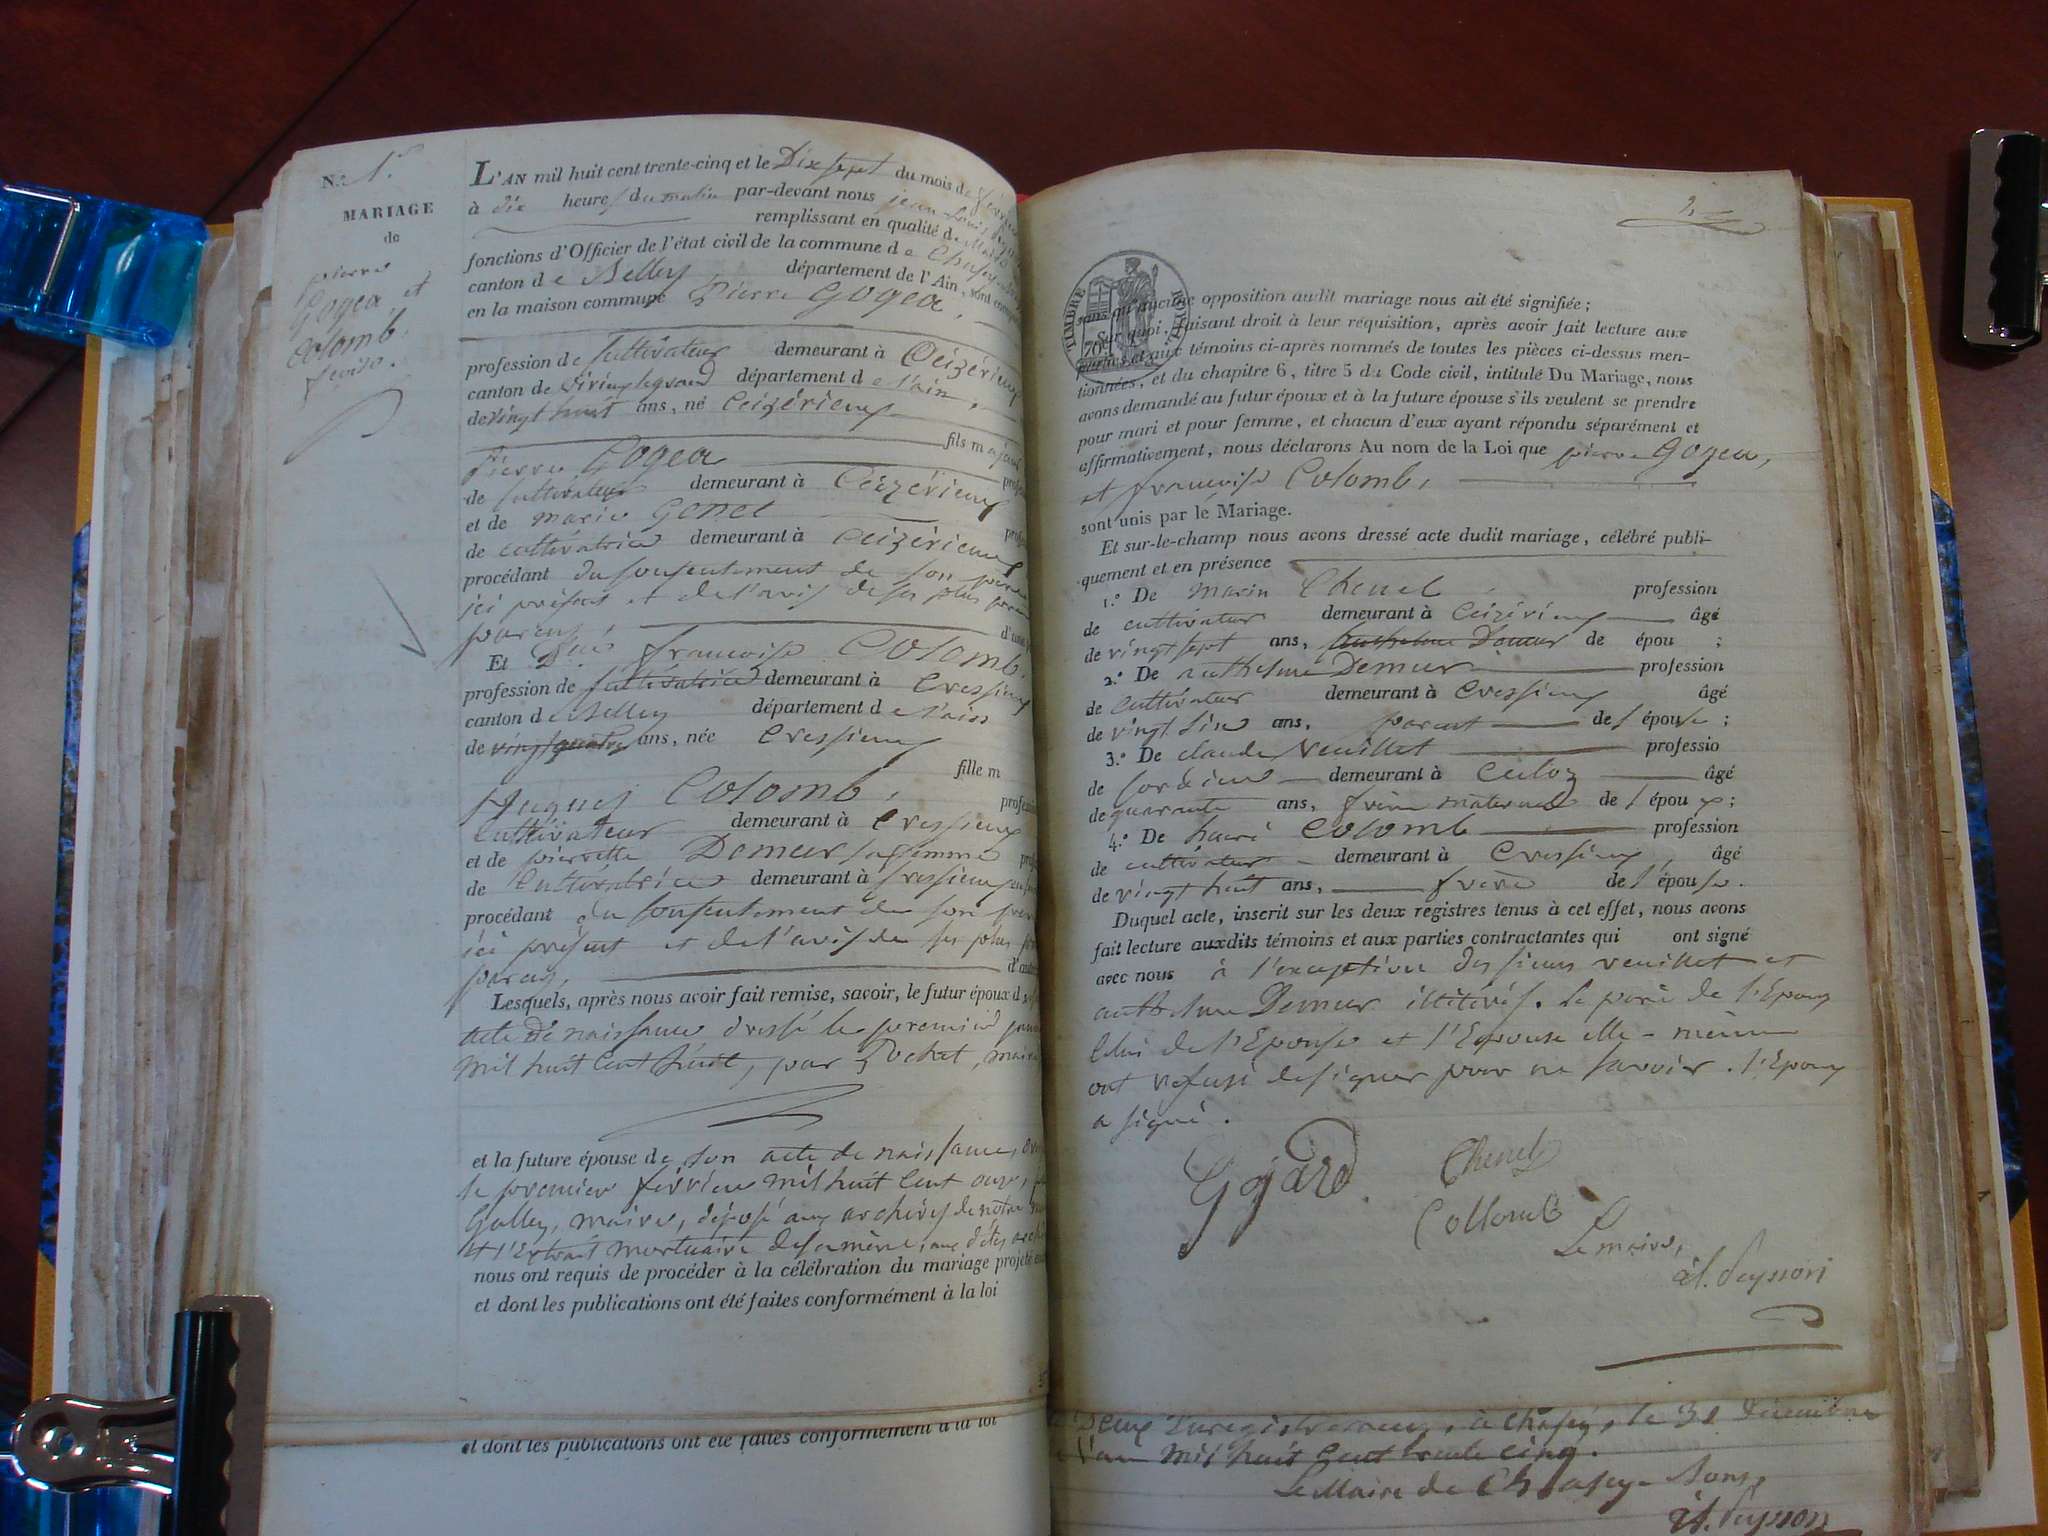 N.º 1.er
MARIAGE
de
pierre
Gogea, et
Colomb.
L'AN mil huit cent trente-cinq et le Dix sept du mois de
à dix heures du matin par-devant nous jean Louis
remplissant en qualité de Maire
fonctions d'Officier de l'état civil de la commune de
canton de Belley, département de l'Ain, sont
en la maison commune Pierre Gogea,
profession de Cultivateur demeurant à Ceizérieux
canton de virieu legrand département de l'ain,
de vingt huit ans, né Ceizérieux
fils m ajeur
Pierre Gogea
de Cultivateur demeurant à Ceizérieux
et de marie Gonet
de cultivatrice demeurant à Ceizérieux
procédant du Consentement de son pere
ici présent et de l'avis de ses plus
parens, d'une
Et Dlle francoise Colomb,
profession de Cultivatrice demeurant à Cressieux
canton de Belley département de l'ain
de vingt quatre ans, née Cressieux
fille m
Hugues Colomb,
Cultivateur demeurant à Cressieux
et de pierrette Demeur sa femme
de Cultivatrice demeurant à Cressieux
procédant du Consentement de son pere
ici présent et de l'avis de ses plus
parens, d'autre
Lesquels, après nous avoir fait remise, savoir, le futur époux de son
acte de naissance dressé le premier
mil huit cent huit, par Pochet, maire
et la future épouse de son acte de naissance,
le premier février mil huit cent onze,
Galley, maire, déposé aux archives de notre
et l'Extrait mortuaire de sa mère, aux dites
nous ont requis de procéder à la célébration du mariage projeté
et dont les publications ont été faites conformément à la loi
et dont les publications ont été faites conformément à la loi
2
TIMBRE ROYAL
70
sans qu'aucune opposition audit mariage nous ait été signifiée;
Sur quoi, faisant droit à leur réquisition, après avoir fait lecture aux
parties et aux témoins ci-après nommés de toutes les pièces ci-dessus men-
tionnées, et du chapitre 6, titre 5 du Code civil, intitulé Du Mariage, nous
avons demandé au futur époux et à la future épouse s'ils veulent se prendre
pour mari et pour femme, et chacun d'eux ayant répondu séparément et
affirmativement, nous déclarons Au nom de la Loi que pierre Gogea,
et francoise Colomb,
sont unis par le Mariage.
Et sur-le-champ nous avons dressé acte dudit mariage, célébré publi-
quement et en présence
1.º De marin Chenel profession
de cultivateur demeurant à Ceizérieux âgé
de vingt sept ans, anthelme Demeur de épou ;
2.º De anthelme Demeur profession
de Cultivateur demeurant à Cressieux âgé
de vingt six ans, parent de l'épouse ;
3.º De claude Veuillet professio
de demeurant à Culoz âgé
de quarante ans, frère maternel de l'époux ;
4.º De henri Colomb profession
de cultivateur demeurant à Cressieux, âgé
de vingt huit ans, frere de l'épouse.
Duquel acte, inscrit sur les deux registres tenus à cet effet, nous avons
fait lecture auxdits témoins et aux parties contractantes qui ont signé
avec nous à l'exception des sieurs veuillet et
anthelme Demeur illitérés. le père de l'Epoux
Celui de l'Epouse et l'Epouse elle-même
ont refusé de signer pour ne savoir. l'Epoux
a signé.
Gojard Chenel
Collomb
Le maire,
Peysson
Deux Enregistremens, à , le 31 Décembre
l'an mil huit cent trente cinq.
Le Maire de
Peysson